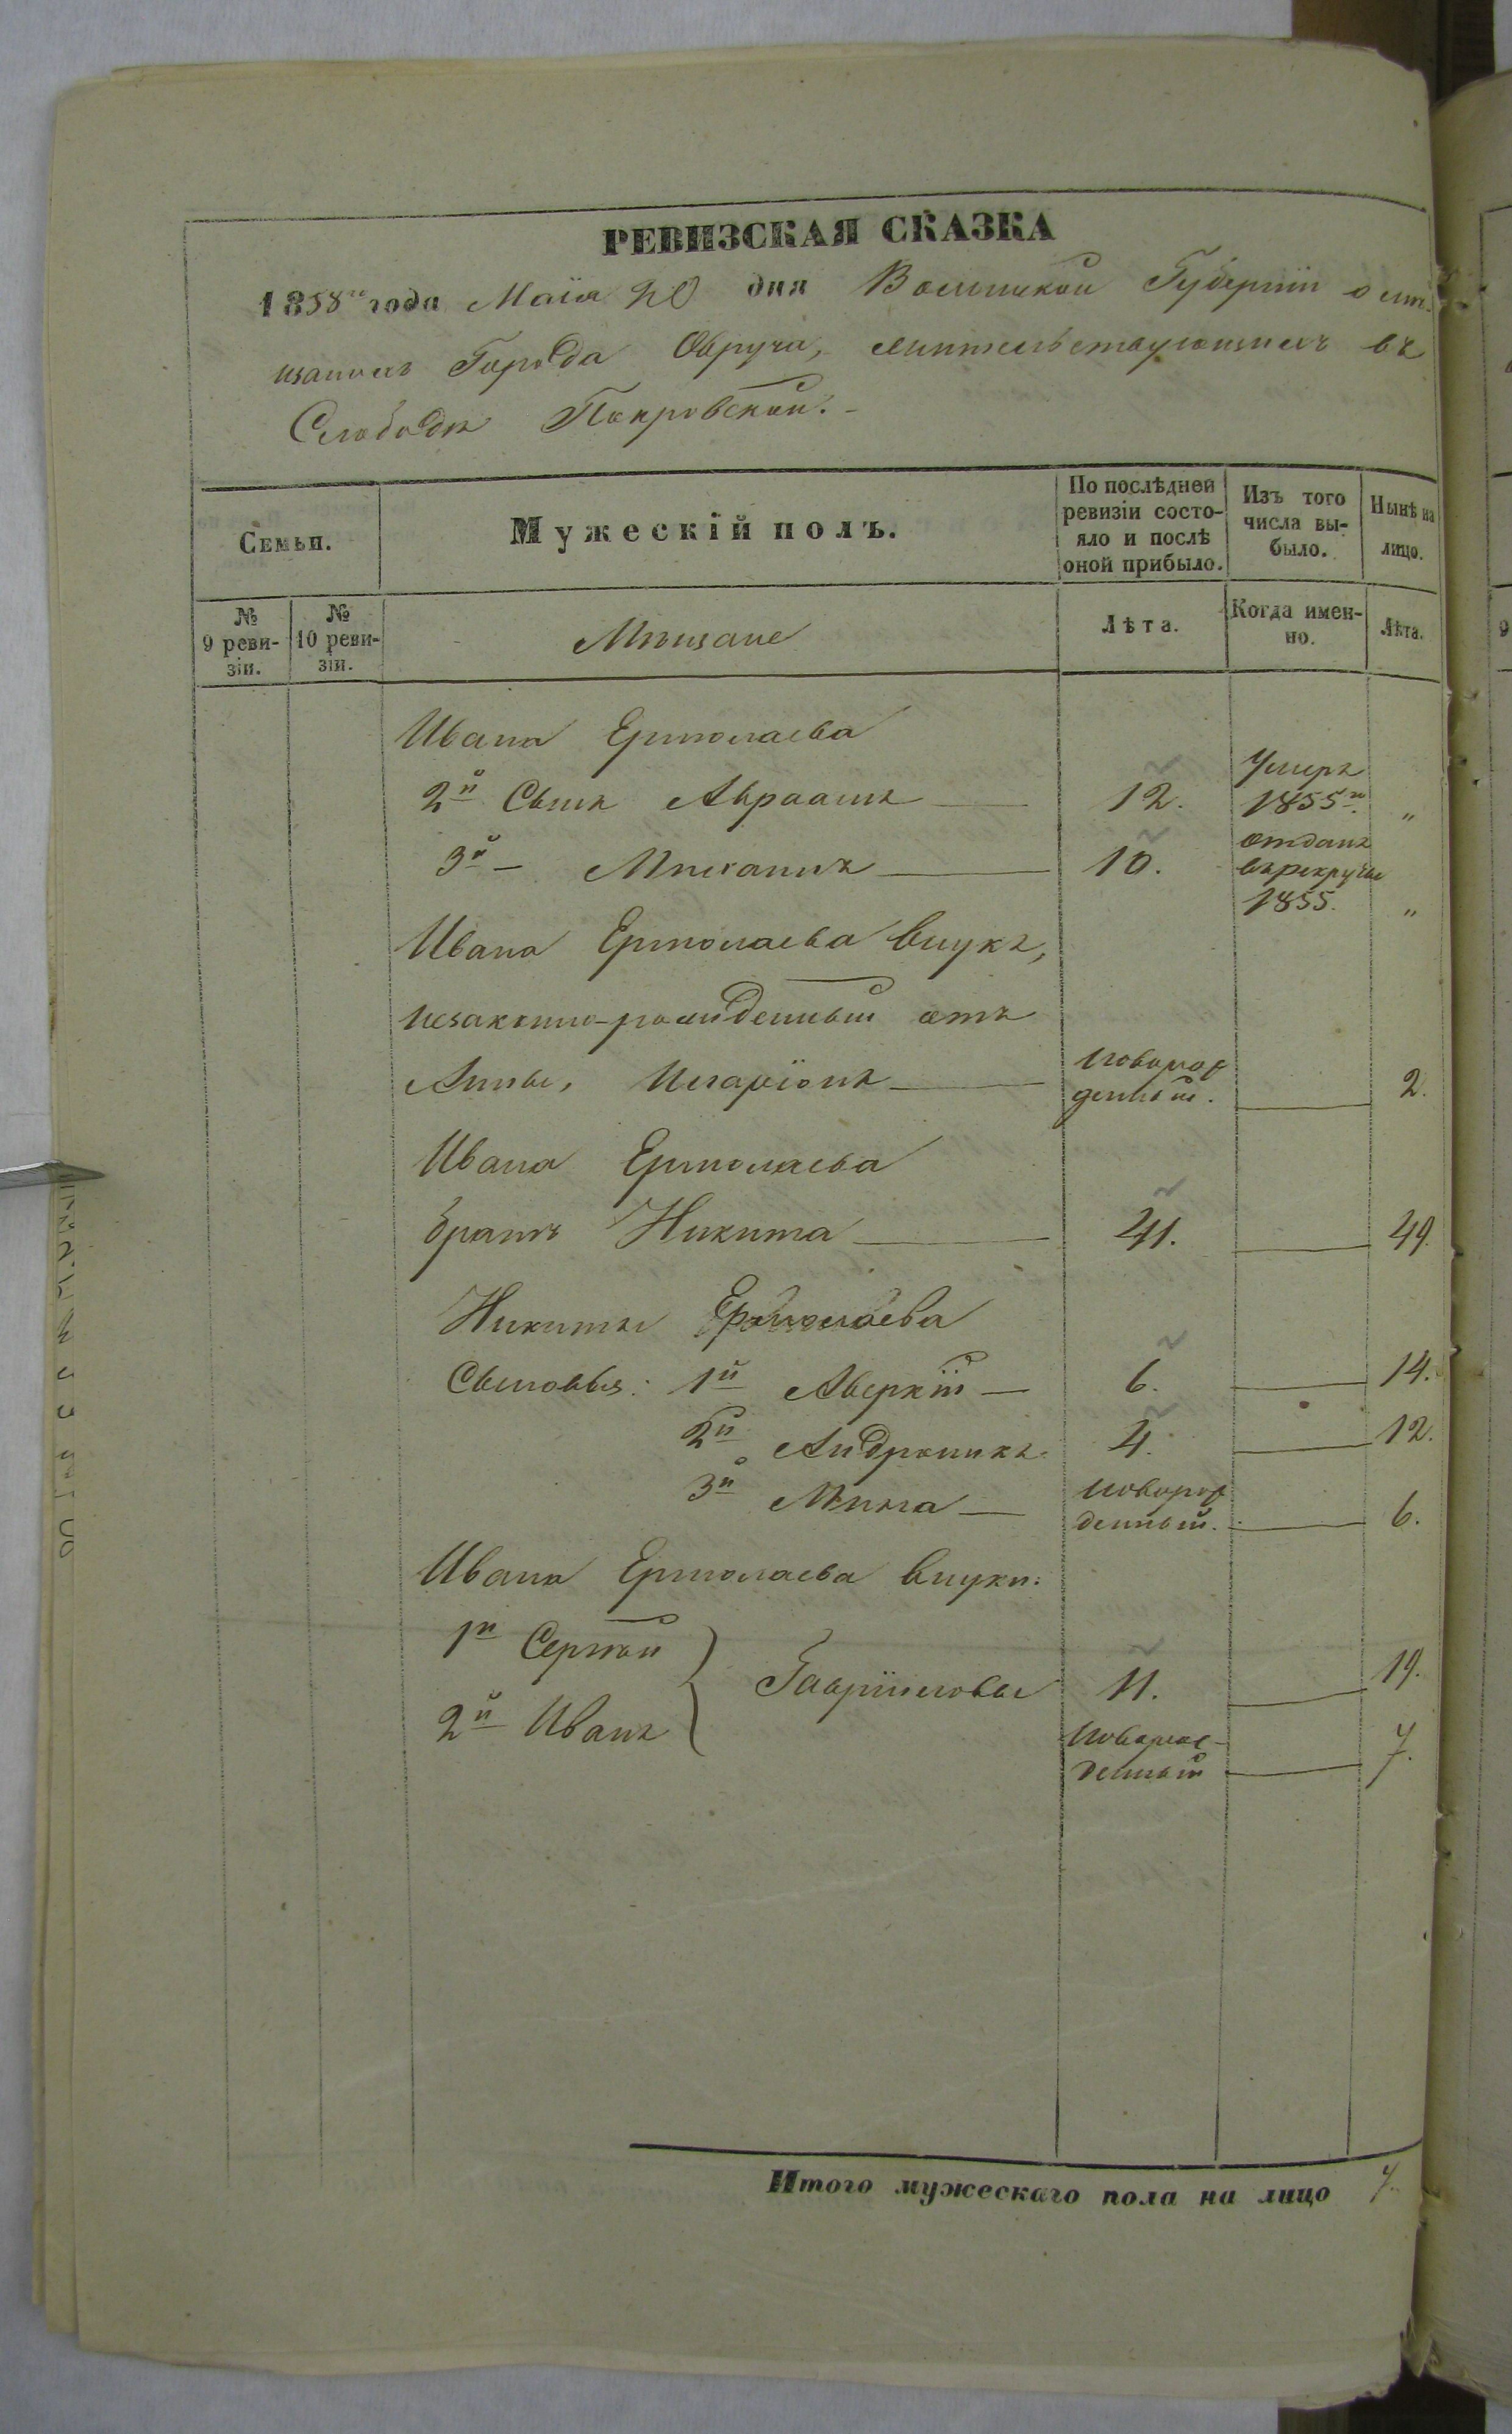 РЕВИЗСКАЯ СКАЗКА
1858го года Маія 20 дня Волынской Губерніи о мѣ-
щанахъ Города Овруча, жительствующихъ въ
Слободѣ Покровской.
Семьи.
Мужескій полъ.
По послѣдней
ревизіи состо-
яло и послѣ
оной прибыло.
Изъ того
числа вы-
было.
Нынѣ на
лицо.
№
9 реви-
зіи.
№
10 реви-
зіи.
Мѣщане
Лѣта.
Когда имен-
но.
Лѣта.
Ивана Ермолаева
2й Сынъ Авраамъ 12. Умеръ 1855го "
3й – Михаилъ 10. отданъ въ рекруты 1855. "
Ивана Ермолаева внукъ,
незаконно-рожденный отъ
Анны, Иларіонъ новорож денный. 2.
Ивана Ермолаева
братъ Никита 41. 49.
Никиты Ермолаева
Сыновья: 1й Аверкій 6. 14.
2й Андроникъ 4. 12.
3й Мина новорож денный. 6.
Ивана Ермолаева внуки:
1й Сергѣй
2й Иванъ
Гавріиловы 11. 19.
новорож- денный 7.
Итого мужескаго пола на лицо 7.